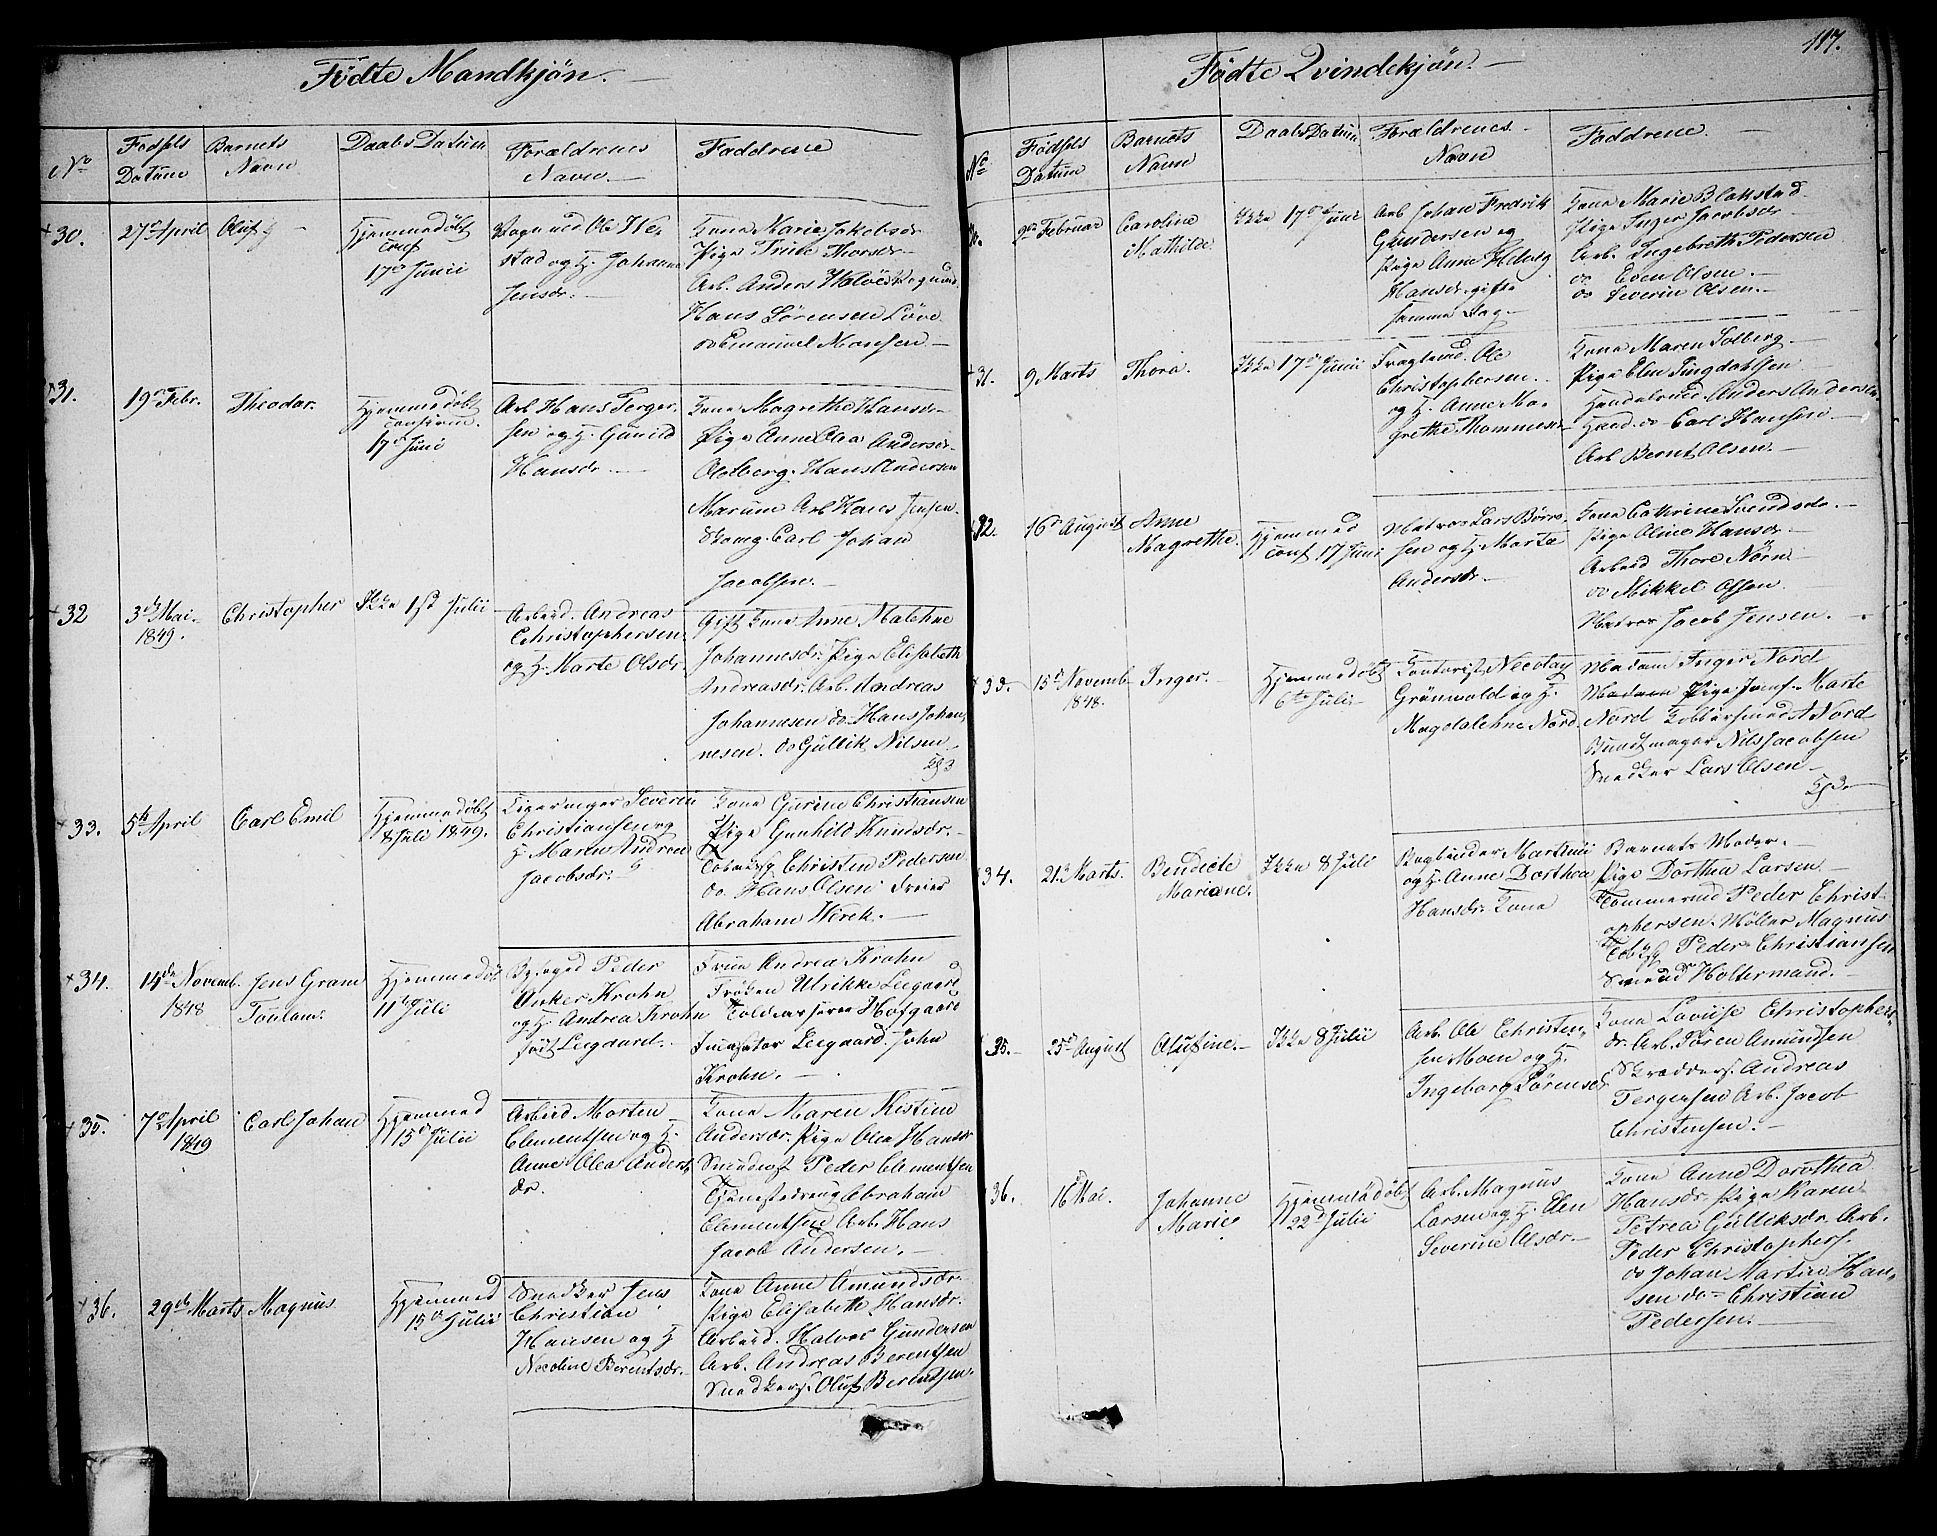 117.
Fødte Mandkjøn.
No
Fødsls Datum
Barnets Navn
Daabs Datum
Forældrenes Navn.
Faddrene
30.
27de April
Oluf
Hjemmedøbt
Conf
17de Junii
Vognmd Ole He-
stad og H. Johanne
Jensdr.
Kone Marie Jakobsdr
Pige Trine Thorsdr
Arb. Anders Vognmd.
Hans Sørensen Løve
do Emanuel Monsen
31.
19de Febr.
Theodor.
Hjemmedøbt
confirm.
17de Junii
Arb Hans Terger-
sen og H. Gunild
Hansdr.
Kone Magrethe Hansdr
Pige Anne Olea Andersdr
Hans Andersen
Arb Hans Jensen
Carl Johan
Jacobsen.
32
3de Mai
1849.
Christopher
Ikke 1st Julii
Arbeid. Andreas
Christophersen
og H. Marte Olsdr.
Gift Kone Anne Malehne
Johannesdr. Pige Elisabeth
Andreasdr. Arb. Andreas
Johannesen do Hans Johan-
nesen. do Gullik Nilsen
33.
5te April
Carl Emil
Hjemmedøbt
8 Juli 1849.
Severin
Christiansen og
H Maren Andrea
Jacobsdr.
Kone Gurine Christiansen
Pige Gunhild Knudsdr.
Christen Pedersen
do. Hans Olsen
Abraham Wirek.
34.
14de Novemb.
1848
Jens Gram
Hjemmedøbt
11te Juli
Peder
Anker Krohn
og H. Andrea Krohn
født Leegaard.
Frue Andrea Krohn
Frøken Ulrikke Leegaard
Hofgaard
Leegaard. John
Krohn.
35.
7de April
1849
Carl Johan
Hjemmed
15de Julii
Arbeid Morten
Clementsen og H.
Anne Olea Anders
dr.
Kone Maren Kistine
Andersdr. Pige Olea Hansdr
Peder Clementsen
Tjenestedreng Abraham
Clementsen Arb. Hans
Jacob Andersen.
36.
29de Marts
Magnus
Hjemmed
15de Julii
Snedker Jens
Christian
Hansen og H
Nicoline Berentsdr.
Kone Anne Amundsdr.
Pige Elisabeth Hansdr.
Arbeid. Halvor Gundersen
Arb. Andreas Berentsen
Snedkers. Oluf Berentsen.
Fødte Qvindekjøn.
No
Fødsls Datum
Barnets Navn
Daabs Datum
Forældrenes Navn
Faddrene.
30.
Februar
Caroline
Mathilde
Ikke 17de Juni
Arb Johan Fredrik
Gundersen og
Pige Anne Helvig
Hansdr. gifte
samme Dag
Kone Marie Blakstad
Pige Inger Jacobsdr
Arb. Ingebreth Pedersen
do Even Olsen.
do Severin Olsen.
31.
9 Marts
Thora.
Ikke 17de Junii
Ole
Christophersen.
og H. Anne Ma-
grethe Mommesdr
Kone Maren Solberg.
Pige Elen
Anders Andersen
do Carl Hansen
Arb Bernt Olsen.
32.
16de August
Anne
Magrethe.
Hjemmed
Conf. 17 Juni
Matros Lars Børre-
sen og H. Marte
Andersdr.
Kone Cathrine Svendsdr.
Pige Oline Hansdr.
Arbeid Thore Nørn
do Mikkel Olsen
Matros Jacob Jensen.
33.
15de Novemb
1848.
Inger.
Hjemmedøbt
6te Juli
Contorist Nicolay
Grønvold og H.
Magdalehne Nord.
Madam Inger Nord
Pige Jomf. Marte
Nord Kobbersmed A Nord
Bundtmager Nils Jacobsen
Snedker Lars Olsen
34.
21de Marts.
Bendicte
Mariane.
Ikke 8 Juli
Bogbinder Martinii
og H. Anne Dorthea
Hansdr. Kone
Barnets Moder.
Pige Dorthea Larsen
Tømmermd Peder Christ-
ophersen. Møller Magnus
Peder Christiansen
Smed Holtermand.
35.
25de August
Olufine.
Ikke 8 Julii
Arb. Ole Christen-
sen Moen og H.
Ingeborg Sørensdr
Kone Lovise Christophers-
dr. Arb. Søren Amundsen
Skrædders. Andreas
Tergersen Arb. Jacob
Christensen.
36.
16de Mai.
Johanne
Marie
Hjemmedøbt
22de Julii
Arb. Magnus
Larsen og H. Elen
Severine Olsdr.
Kone Anne Dorothea
Hansdr. Pige Karen
Petrea Gulliksdr. Arb.
Peder Christophers.
do Johan Martin Han-
sen do Christian
Pedersen.